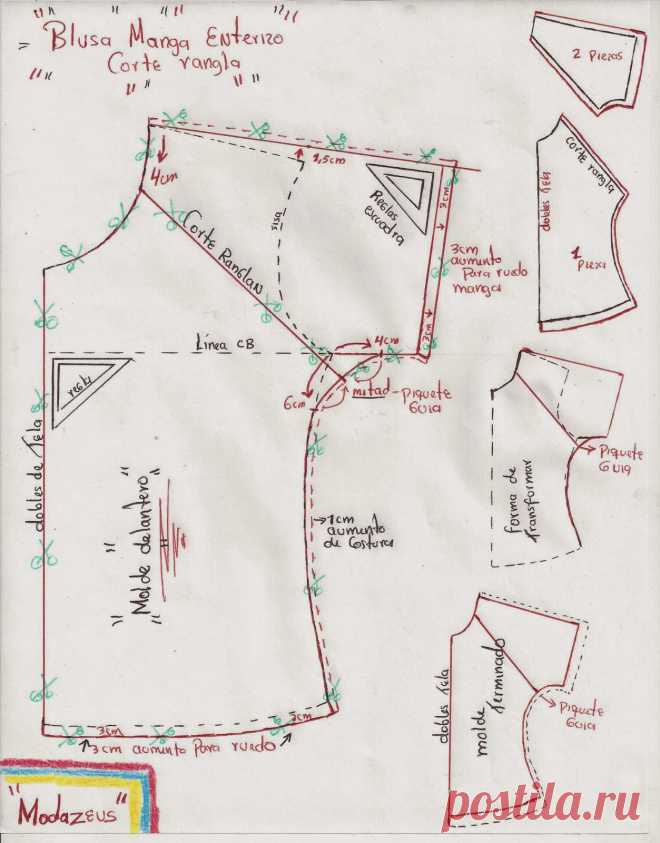 "Blusa Manga Enterizo
Corte rangla"
2 Piezas
4cm
1,5cm
sisa
Reglas
escuadra
3cm
3cm
3cm
aumento
Para ruedo
manga
Corte Ranglan
Línea CB
4cm
6cm
mitad-Piquete
Guia
regla
dobles de Tela
"Molde delantero"
→1cm
aumento
de Costura
3cm
3cm
3cm aumento Para ruedo
"Modazeus"
dobles Tela
Corte rangla
1
Pieza
Piquete
Guia
forma de
Transformar
dobles Tela
molde Terminado
Piquete
Guia
postila.ru